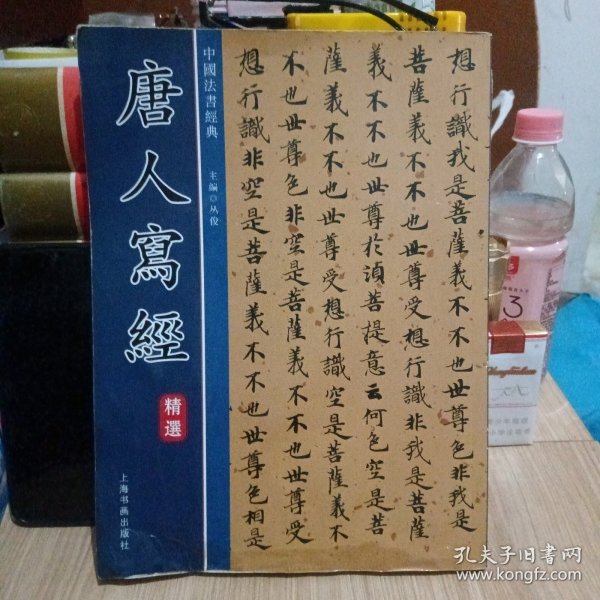 中國法書經典
主編◎丛俊
唐人寫經
精選
上海书画出版社
想行識我是菩薩義不不也世尊色非我是
菩薩義不不也世尊受想行識非我是菩薩
義不不也世尊於湏菩提意云何色空是菩
薩義不不也世尊受想行識空是菩薩義不
不也世尊色非空是菩薩義不不也世尊受
想行識非空是菩薩義不不也世尊色相是
3
孔夫子旧书网
www.kongfz.com